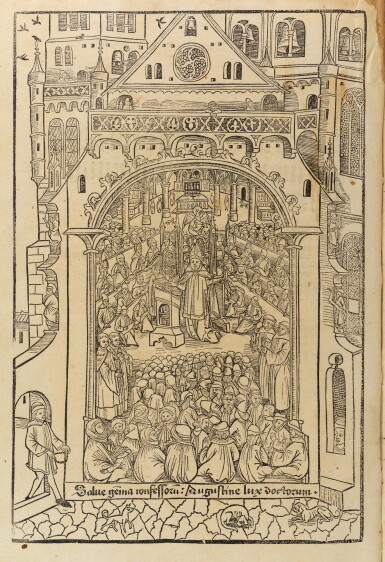 Salue gēma confessorū: Augustine lux doctorum.